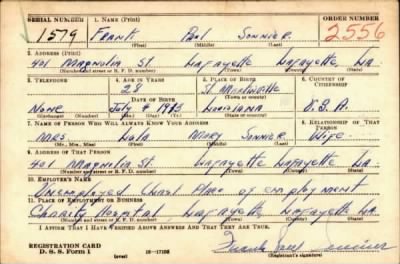 SERIAL NUMBER 1. NAME (Print) ORDER NUMBER
1579 Frank Paul Sonnier 2556
(First) (Middle) (Last)
2. ADDRESS (Print)
401 Magnolia St. Lafayette Lafayette La.
(Number and street or R. F. D. number) (Town) (County) (State)
3. TELEPHONE 4. AGE IN YEARS 5. PLACE OF BIRTH 6. COUNTRY OF CITIZENSHIP
28 St. Martinville
(Town or county)
DATE OF BIRTH
None July 4 1913 Louisiana U.S.A.
(Exchange) (Number) (Mo.) (Day) (Yr.) (State or country)
7. NAME OF PERSON WHO WILL ALWAYS KNOW YOUR ADDRESS 8. RELATIONSHIP OF THAT PERSON
Mrs. Mary Sonnier Wife
(Mr., Mrs., Miss) (First) (Middle) (Last)
9. ADDRESS OF THAT PERSON
401 Magnolia St. Lafayette Lafayette La.
(Number and street or R. F. D. number) (Town) (County) (State)
10. EMPLOYER'S NAME
Unemployed Place of employment
11. PLACE OF EMPLOYMENT OR BUSINESS
Charity Hospital, Lafayette Lafayette La.
(Number and street or R. F. D. number) (Town) (County) (State)
I AFFIRM THAT I HAVE VERIFIED ABOVE ANSWERS AND THAT THEY ARE TRUE.
REGISTRATION CARD
D. S. S. Form 1 (over) 16—17105 Frank Paul Sonnier
(Registrant's signature)